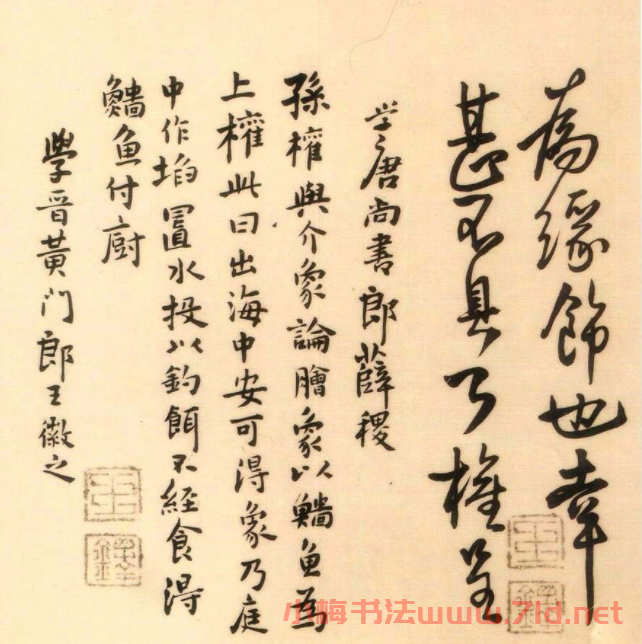 為緣飾也幸
甚不具了權呈
学唐尚書郎薛稷
孫權與介象論膾象以魚為
上權此曰出海中安可得象乃庭
中作埳置水投以釣餌不經食得
魚付廚
學晉黃門郎王徽之
小梅书法www.7ld.net